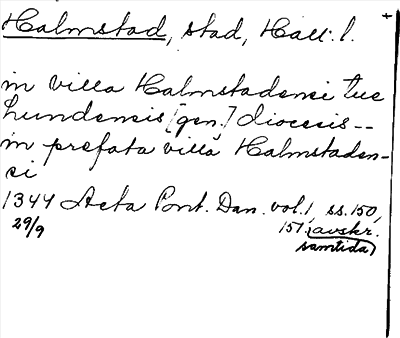 Halmstad, stad, Hall. l.
in villa Halmstadensi tue
Lundensis [gen.] diocesis --
in prefata villa Halmstaden-
si
1344 Acta Pont. Dan. vol. 1, ss. 150,
29/9 151. (avskr.
samtida)